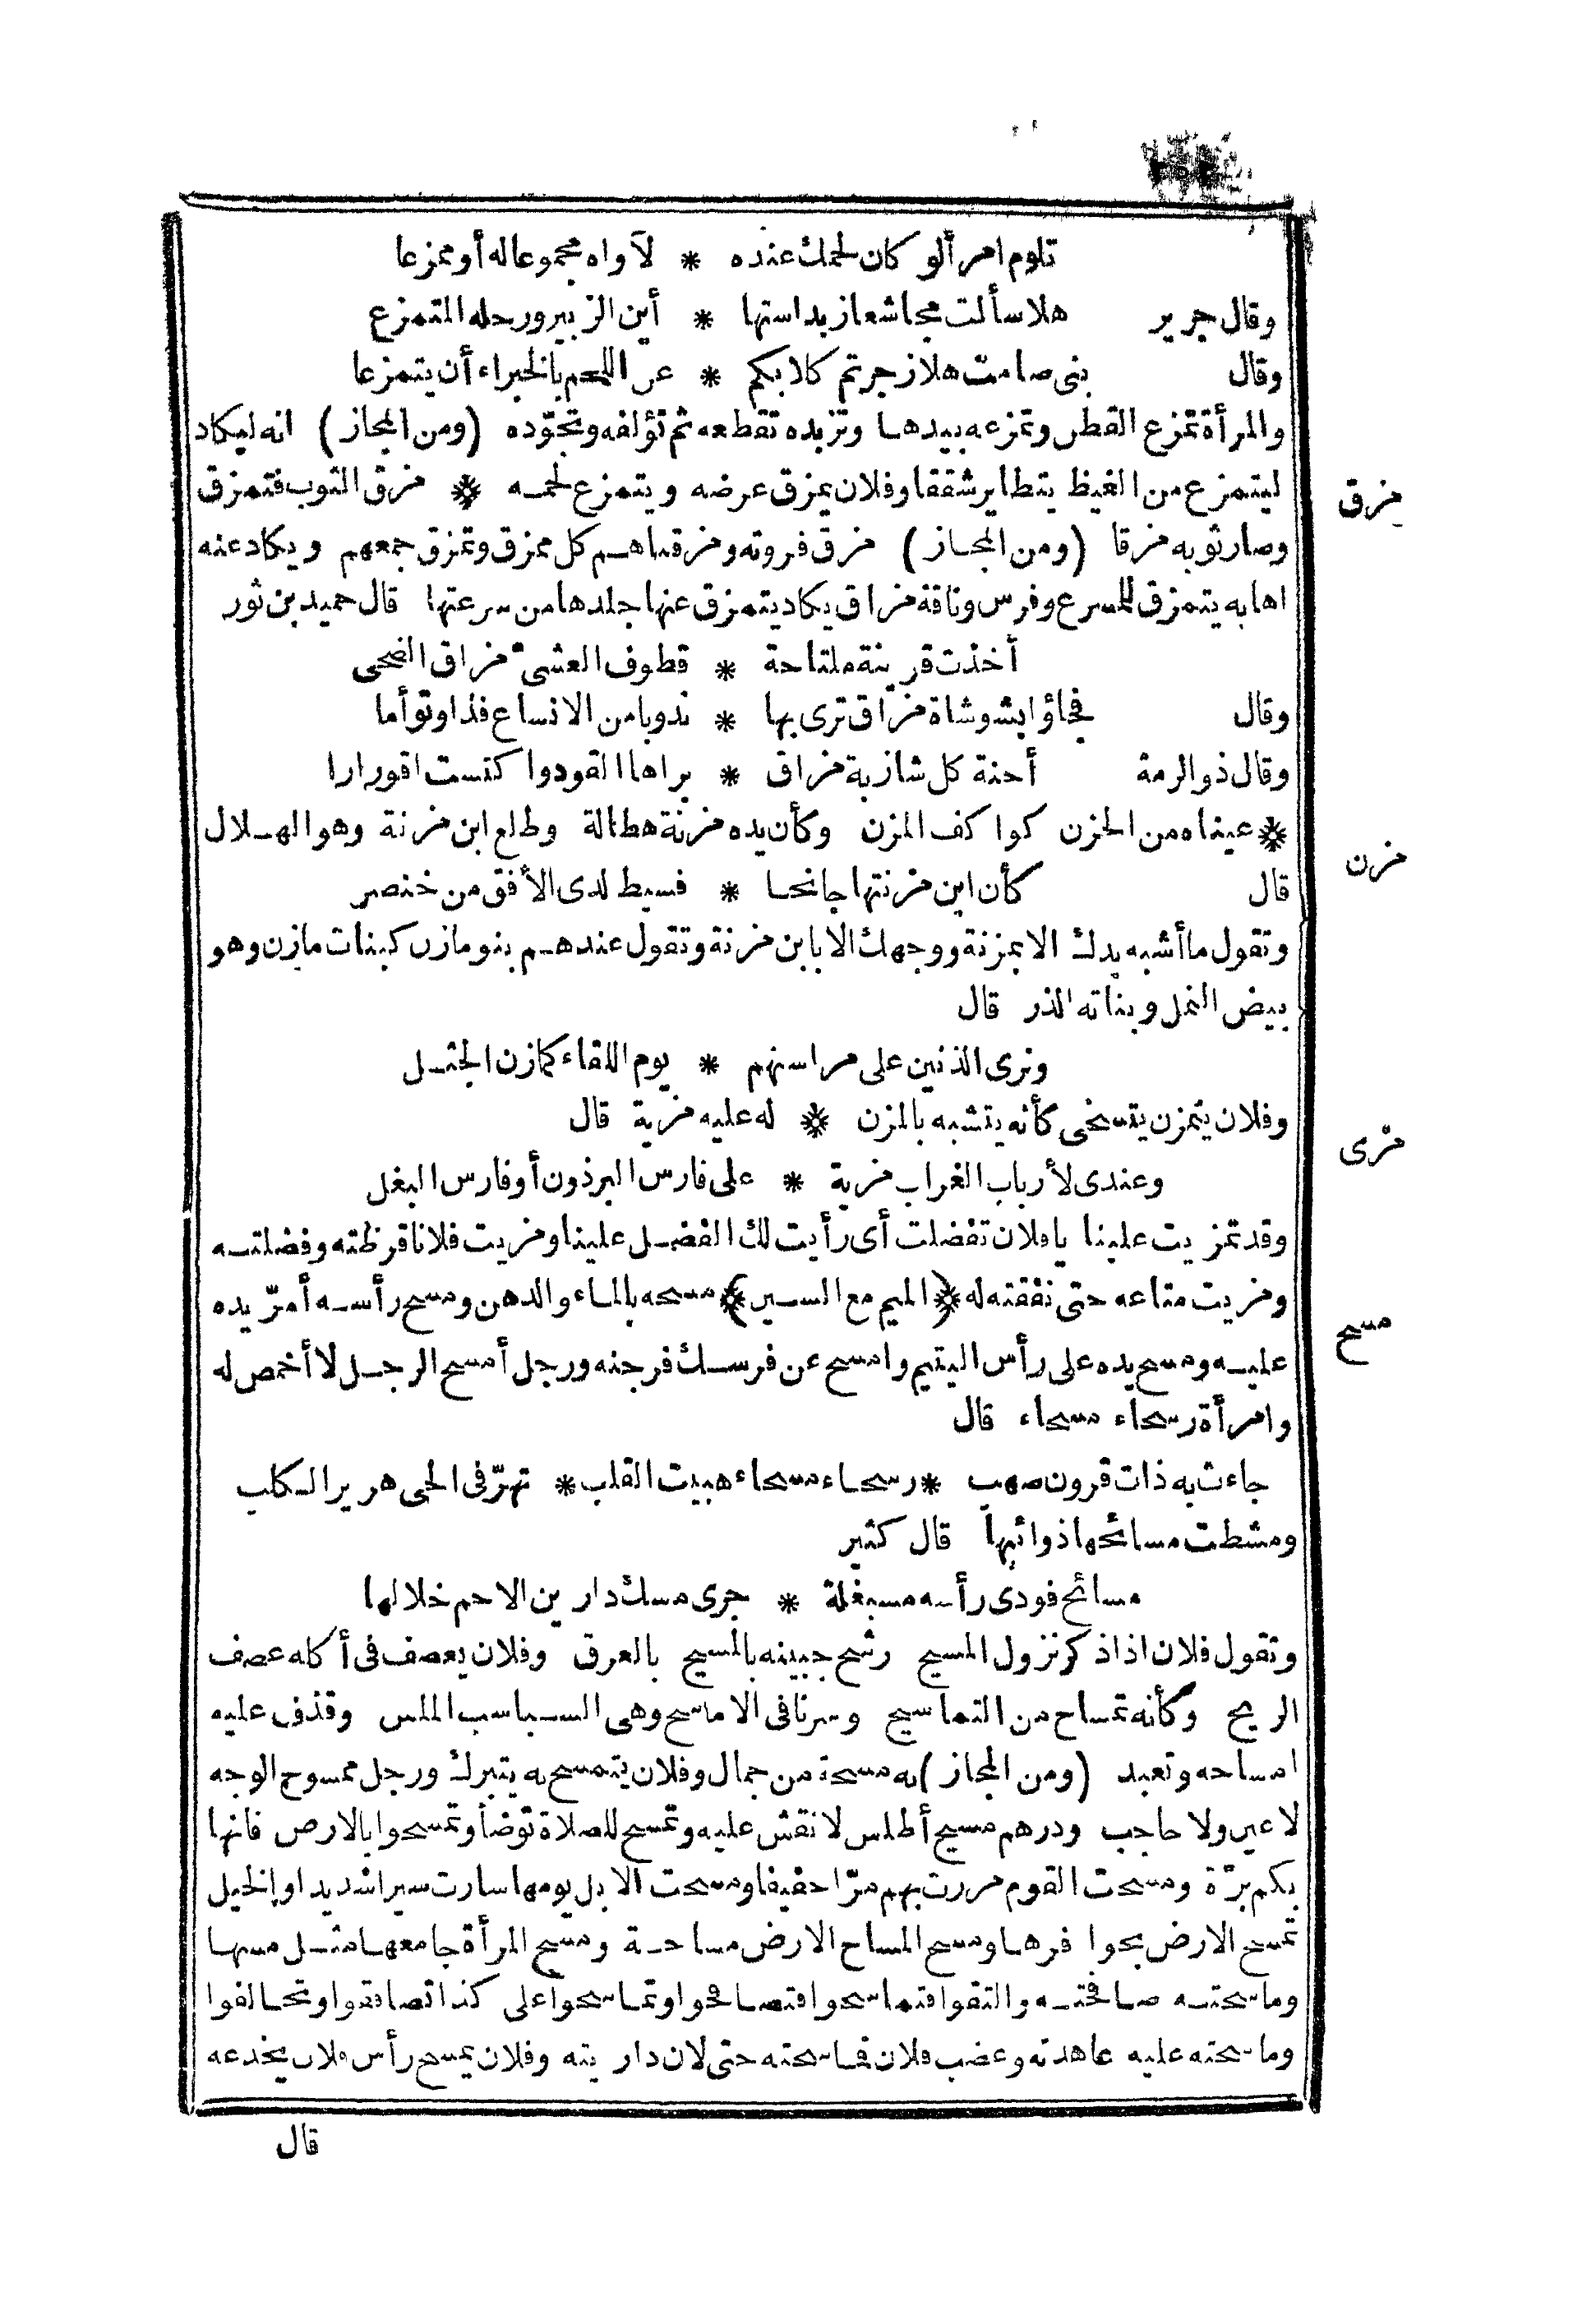 تلوم امرأ لو كان لحمك عنده * لآواه مجموعا له أو ممزعا
وقال جرير هلا سألت مجاشعا زبد استها * أين الزبير ورحله المتمزع
وقال بنى صامت هلا زجرتم كلابكم * عن اللحم بالخبراء أن يتمزعا
والمرأة تمزع القطن وتمزعه بيدها وتزبده تقطعه ثم تؤلفه وتجوّده (ومن المجاز) انه ليكاد
ليتمزع من الغيظ يتطاير شققا وفلان يمزق عرضه ويتمزع لحمه * مزق الثوب فتمزق
مزق
وصار ثوبه مزقا (ومن المجاز) مزق فروته ومزقناهم كل ممزق وتمزق جمعهم ويكاد عنه
اهابه يتمزق للمسرع وفرس وناقة مزاق يكاد يتمزق عنها جلدها من سرعتها قال حميد بن ثور
أخذت قرينة ملتاحة * قطوف العشىّ مزاق الضحى
وقال فجاؤا بشوشاة مزاق ترى بها * ندوبا من الانساع فذا وتوأما
وقال ذو الرمة أجنة كل شازبة مزاق * براها القود واكتست اقورارا
* عيناه من الحزن كواكف المزن وكأن يده مزنة هطالة وطلع ابن مزنة وهو الهلال
مزن
قال كأن ابن مزنتها جانحا * فسيط لدى الأفق من خنصر
وتقول ما أشبه يدك الا بمزنة ووجهك الا بابن مزنة وتقول عندهم بنو مازن كبنات مازن وهو
بيض النمل وبناته الذر قال
وترى الذنين على مراسنهم * يوم اللقاء كمازن الجثل
وفلان يتمزن يتسخى كأنه يتشبه بالمزن * له عليه مزية قال
مزى
وعندى لأرباب الغراب مزية * على فارس البرذون أو فارس البغل
وقد تمزيت علينا يا فلان تفضلت أى رأيت لك الفضل علينا ومزيت فلانا قرظته وفضلته
ومزيت متاعه حتى نفقته له *(الميم مع السين)* مسحه بالماء والدهن ومسح رأسه أمرّ يده
مسح
عليه ومسح يده على رأس اليتيم وامسح عن فرسك فرجنه ورجل أمسح الرجل لا أخمص له
وامرأة رسحاء مسحاء قال
جاءت به ذات قرون صهب * رسحاء مسحاء هبيت القلب * تهرّ فى الحى هرير الكلب
ومشطت مسائحها ذوائبها قال كثير
مسائح فودى رأسه مسبغلة * جرى مسك دارين الاحم خلالها
وتقول فلان اذا ذكر نزول المسيح رشح جبينه بالمسيح بالعرق وفلان يعصف فى أكله عصف
الريح وكأنه تمساح من التماسيح وسرنا فى الاماسح وهى السباسب الملس وقذف عليه
امساحه وتعبد (ومن المجاز) به مسحة من جمال وفلان يتمسح به يتبرك ورجل ممسوح الوجه
لا عين ولا حاجب ودرهم مسيح أطلس لا نقش عليه وتمسح للصلاة توضأ وتمسحوا بالارض فانها
بكم برّة ومسحت القوم مررت بهم مرّا خفيفا ومسحت الابل يومها سارت سيرا شديدا والخيل
تمسح الارض بحوافرها ومسح المساح الارض مساحة ومسح المرأة جامعها مثل مسها
وماسحته صافحته والتقوا فتماسحوا فتصافحوا وتماسحوا على كذا تصافقوا وتحالفوا
وماسحته عليه عاهدته وغضب فلان فماسحته حتى لان داريته وفلان يمسح رأس فلان يخدعه
قال